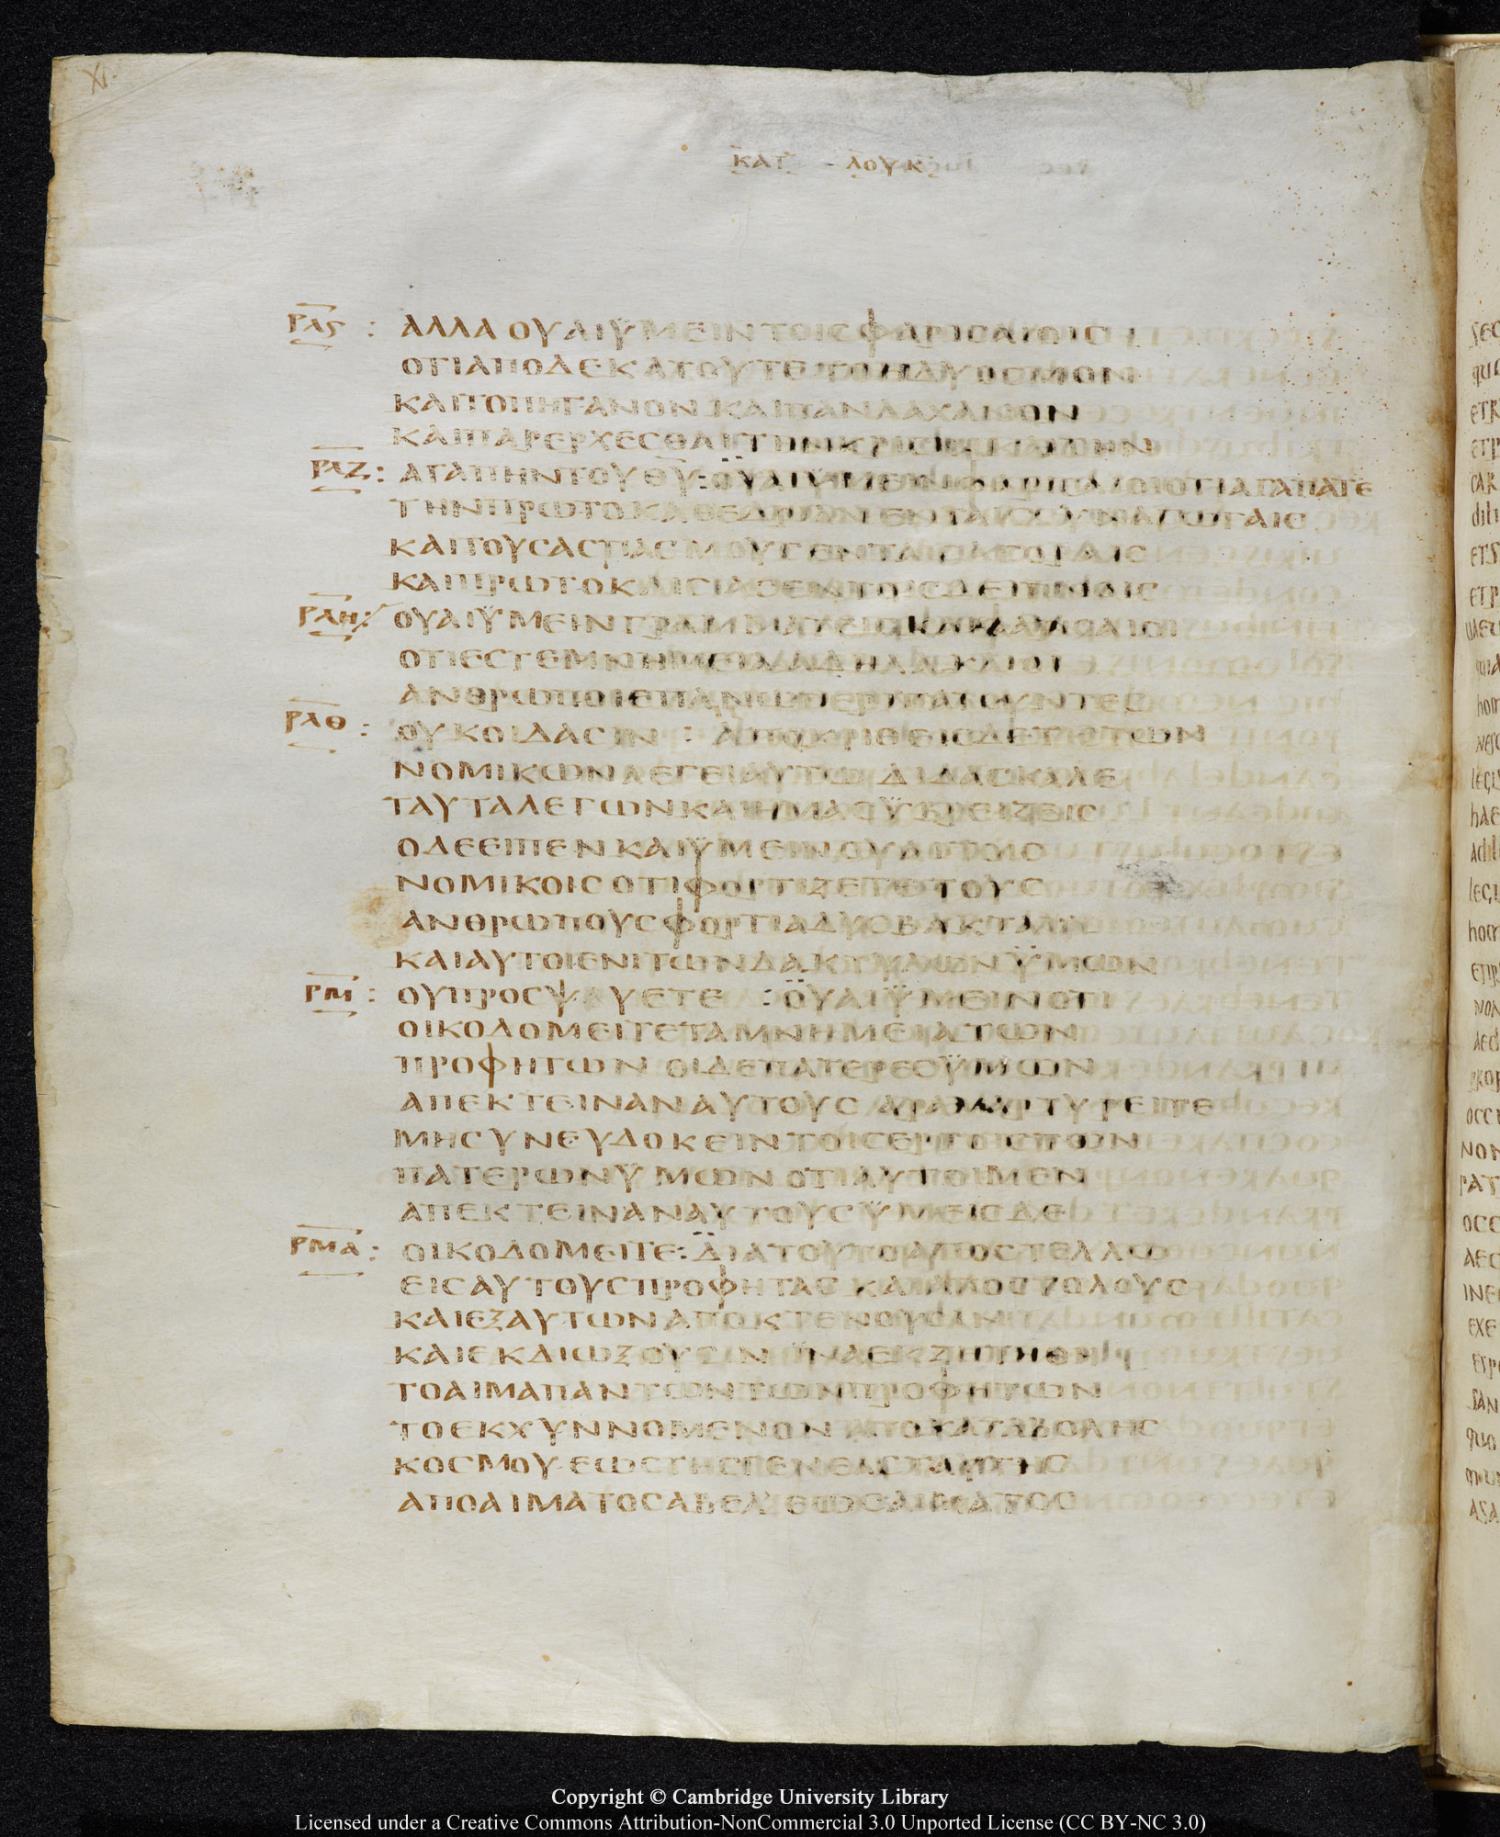 XI
ΚΑΤ - ΛΟΥΚ
ΡΛϚ : ΑΛΛΑ ΟΥΑΙ ΫΜΕΙΝ ΤΟΙΣ ΦΑΡΙΣΑΙΟΙΣ
ΟΤΙ ΑΠΟΔΕΚΑΤΟΥΤΕ ΤΟ ΗΔΥΟΣΜΟΝ
ΚΑΙ ΤΟ ΠΗΓΑΝΟΝ ΚΑΙ ΠΑΝ ΛΑΧΑΝΟΝ
ΚΑΙ ΠΑΡΕΡΧΕΣΘΑΙ ΤΗΝ ΚΡΙΣΙΝ ΚΑΙ ΤΗΝ
ΡΛΖ : ΑΓΑΠΗΝ ΤΟΥ ΘΥ : ΟΥΑΙ ΫΜΕΙΝ ΦΑΡΙΣΑΙΟΙ ΟΤΙ ΑΓΑΠΑΤΕ
ΤΗΝ ΠΡΩΤΟΚΑΘΕΔΡΙΑΝ ΕΝ ΤΑΙΣ ΣΥΝΑΓΩΓΑΙΣ
ΚΑΙ ΤΟΥΣ ΑΣΠΑΣΜΟΥΣ ΕΝ ΤΑΙΣ ΑΓΟΡΑΙΣ
ΚΑΙ ΠΡΩΤΟΚΛΙΣΙΑΣ ΕΝ ΤΟΙΣ ΔΕΙΠΝΟΙΣ
ΡΛΗ : ΟΥΑΙ ΫΜΕΙΝ ΓΡΑΜΜΑΤΕΙΣ ΚΑΙ ΦΑΡΙΣΑΙΟΙ
ΟΤΙ ΕΣΤΕ ΜΝΗΜΕΙΑ ΑΔΗΛΑ ΚΑΙ ΟΙ
ΑΝΘΡΩΠΟΙ ΕΠΑΝΩ ΠΕΡΙΠΑΤΟΥΝΤΕΣ
ΡΛΘ : ΟΥΚ ΟΙΔΑΣΙΝ : ΑΠΟΚΡΙΘΕΙΣ ΔΕ ΤΙΣ ΤΩΝ
ΝΟΜΙΚΩΝ ΛΕΓΕΙ ΑΥΤΩ ΔΙΔΑΣΚΑΛΕ
ΤΑΥΤΑ ΛΕΓΩΝ ΚΑΙ ΗΜΑΣ ΫΒΡΕΙΖΕΙΣ
Ο ΔΕ ΕΙΠΕΝ ΚΑΙ ΫΜΕΙΝ ΟΥΑΙ ΤΟΙΣ
ΝΟΜΙΚΟΙΣ ΟΤΙ ΦΟΡΤΙΖΕΤΕ ΤΟΥΣ
ΑΝΘΡΩΠΟΥΣ ΦΟΡΤΙΑ ΔΥΣΒΑΚΤΑ
ΚΑΙ ΑΥΤΟΙ ΕΝΙ ΤΩΝ ΔΑΚΤΥΛΩΝ ΫΜΩΝ
ΡΜ : ΟΥ ΠΡΟΣΨΑΥΕΤΕ : ΟΥΑΙ ΫΜΕΙΝ ΟΤΙ
ΟΙΚΟΔΟΜΕΙΤΕ ΤΑ ΜΝΗΜΕΙΑ ΤΩΝ
ΠΡΟΦΗΤΩΝ ΟΙ ΔΕ ΠΑΤΕΡΕΣ ΫΜΩΝ
ΑΠΕΚΤΕΙΝΑΝ ΑΥΤΟΥΣ ΑΡΑ ΜΑΡΤΥΡΕΙΤΕ
ΜΗ ΣΥΝΕΥΔΟΚΕΙΝ ΤΟΙΣ ΕΡΓΟΙΣ ΤΩΝ
ΠΑΤΕΡΩΝ ΫΜΩΝ ΟΤΙ ΑΥΤΟΙ ΜΕΝ
ΑΠΕΚΤΕΙΝΑΝ ΑΥΤΟΥΣ ΫΜΕΙΣ ΔΕ
ΡΜΑ : ΟΙΚΟΔΟΜΕΙΤΕ : ΔΙΑ ΤΟΥΤΟ ΑΠΟΣΤΕΛΛΩ
ΕΙΣ ΑΥΤΟΥΣ ΠΡΟΦΗΤΑΣ ΚΑΙ ΑΠΟΣΤΟΛΟΥΣ
ΚΑΙ ΕΞ ΑΥΤΩΝ ΑΠΟΚΤΕΝΟΥΣΙΝ
ΚΑΙ ΕΚΔΙΩΞΟΥΣΙΝ ΪΝΑ ΕΚΖΗΤΗΘΗ
ΤΟ ΑΙΜΑ ΠΑΝΤΩΝ ΤΩΝ ΠΡΟΦΗΤΩΝ
ΤΟ ΕΚΧΥΝΝΟΜΕΝΟΝ ΑΠΟ ΚΑΤΑΒΟΛΗΣ
ΚΟΣΜΟΥ ΕΩΣ ΤΗΣ ΓΕΝΕΑΣ ΤΑΥΤΗΣ
ΑΠΟ ΑΙΜΑΤΟΣ ΑΒΕΛ ΕΩΣ ΑΙΜΑΤΟΣ
Copyright © Cambridge University Library
Licensed under a Creative Commons Attribution-NonCommercial 3.0 Unported License (CC BY-NC 3.0)